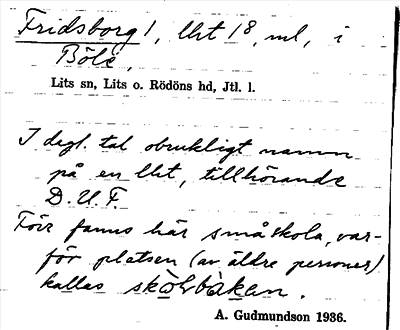 Fridsborg 1, lht 18, ml, i
Böle,
Lits sn, Lits o. Rödöns hd, Jtl. l.
I dagl. tal obrukligt namn
på en lht, tillhörande
D.U.F.
Förr fanns här småskola, var-
för platsen (av äldre personer)
kallas skòlbàkan.
A. Gudmundson 1936.